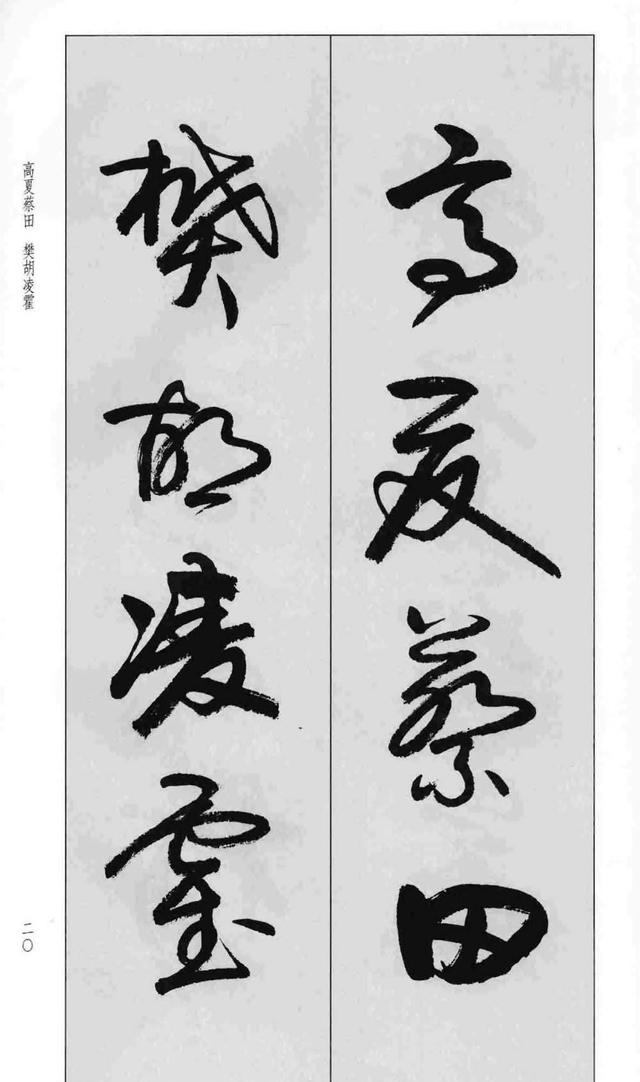 高夏蔡田
樊胡凌霍
高夏蔡田 樊胡凌霍
二〇